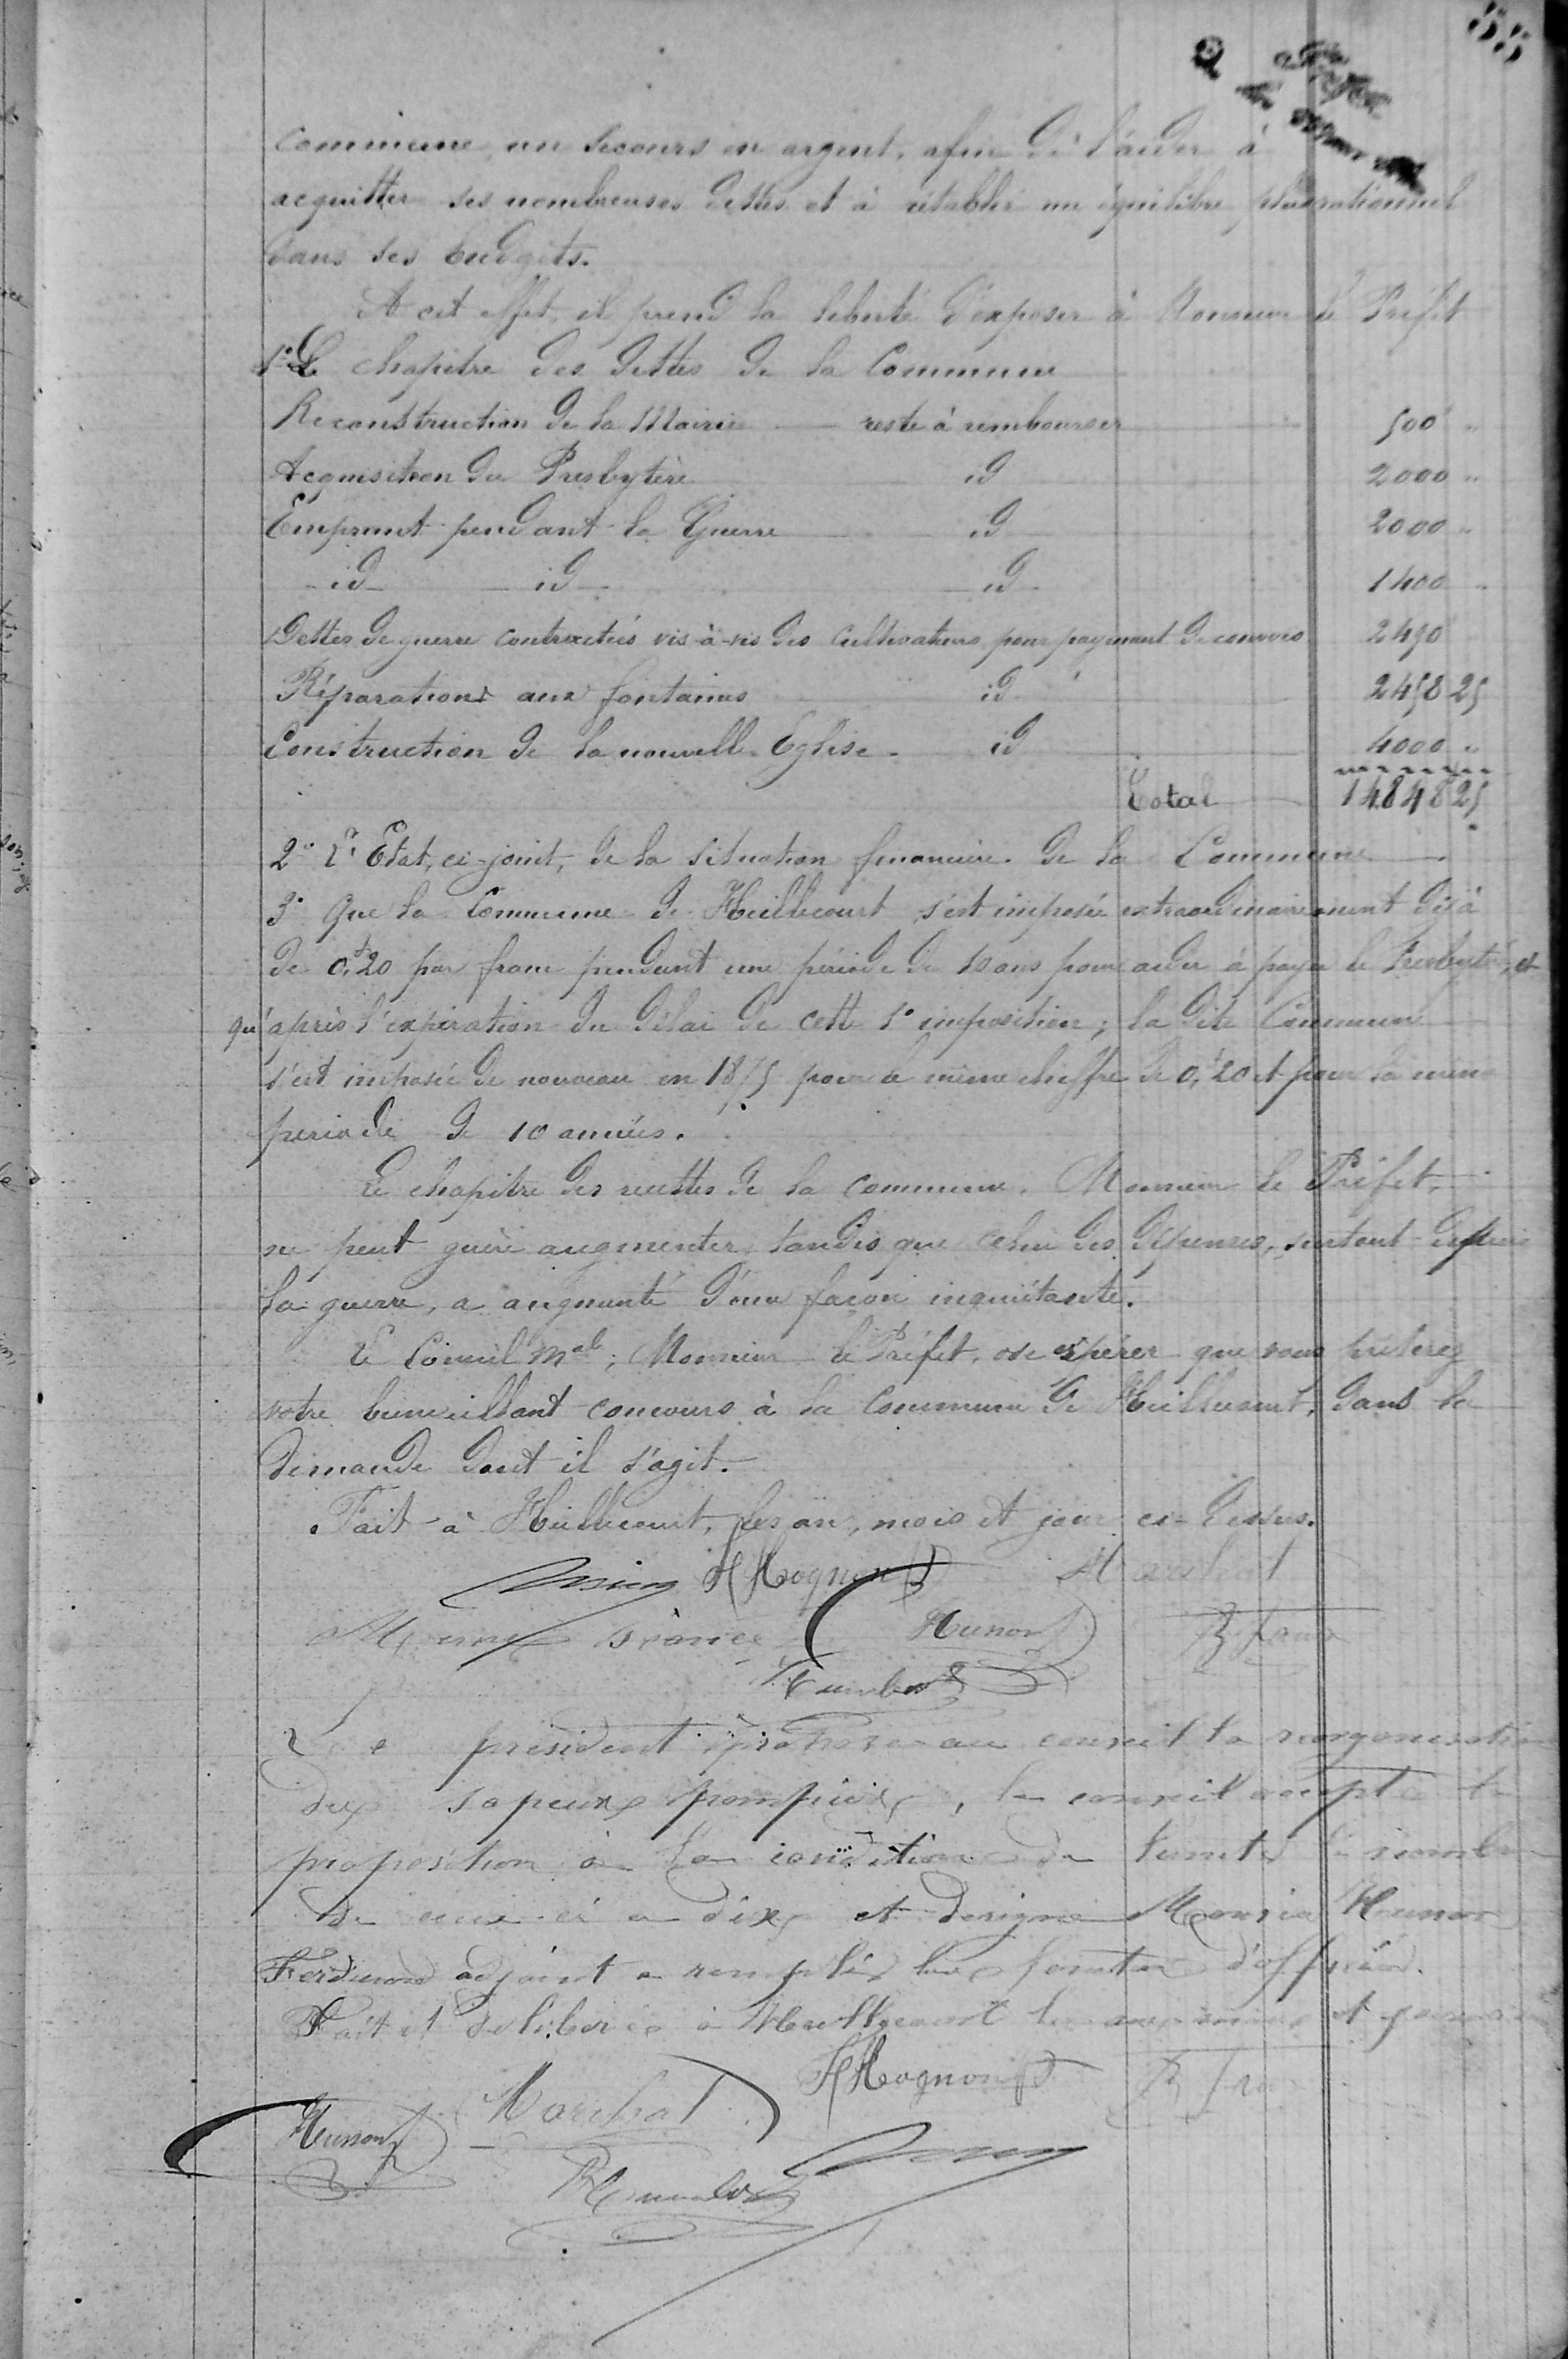 55
commune, un secours en argent, afin de l'aider à
acquitter ses nombreuses dettes et à rétablir un équilibre plus rationnel
dans ses budgets.
A cet effet, il prend la liberté d'exposer à Monsieur le Préfet
1° Le chapitre des dettes de la Commune
Reconstruction de la Mairie — reste à rembourser 500 "
Acquisition du Presbytère id 2000 "
Emprunt pendant la Guerre id 2000 "
id id id 1400 "
Dettes de guerre contractées vis-à-vis des Cultivateurs pour payement de convois 2490
Réparations aux fontaines id 2458 25
Construction de la nouvelle Eglise id 4000 "
Total 14848 25
2° L'Etat, ci-joint, de la situation financière de la Commune
3° Que la Commune de Heillecourt s'est imposée extraordinairement déjà
de 0,f20 par franc pendant une période de 10 ans pour aider à payer le Presbytère, et
qu'après l'expiration du délai de cette 1e imposition; la dite Commune
s'est imposée de nouveau en 1875 pour le même chiffre de 0,f20 et pour la même
période de 10 années.
Le chapitre des recettes de la commune, Monsieur le Préfet,
ne peut guère augmenter, tandis que celui des dépenses, surtout depuis
la guerre, a augmenté d'une façon inquiétante.
Le Conseil mal, Monsieur le Préfet, ose espérer que vous prêterez
votre bienveillant concours à la Commune de Heillecourt, dans la
demande dont il s'agit.
Fait à Heillecourt, les an, mois et jour ci-dessus.
H Hognon Marchal
Husson
Humbert
Le président propose au conseil la reorganisation
des sapeurs pompiers, le conseil accepte la
proposition à la condition de le nombre
de ceux ci a dix et designe Monsieur Husson
Ferdinand adjoint a remplir les fonction d'officier.
Fait et deliberé à Heillecourt les an mois et jour
H Hognon
Marchal
Husson
Humbert